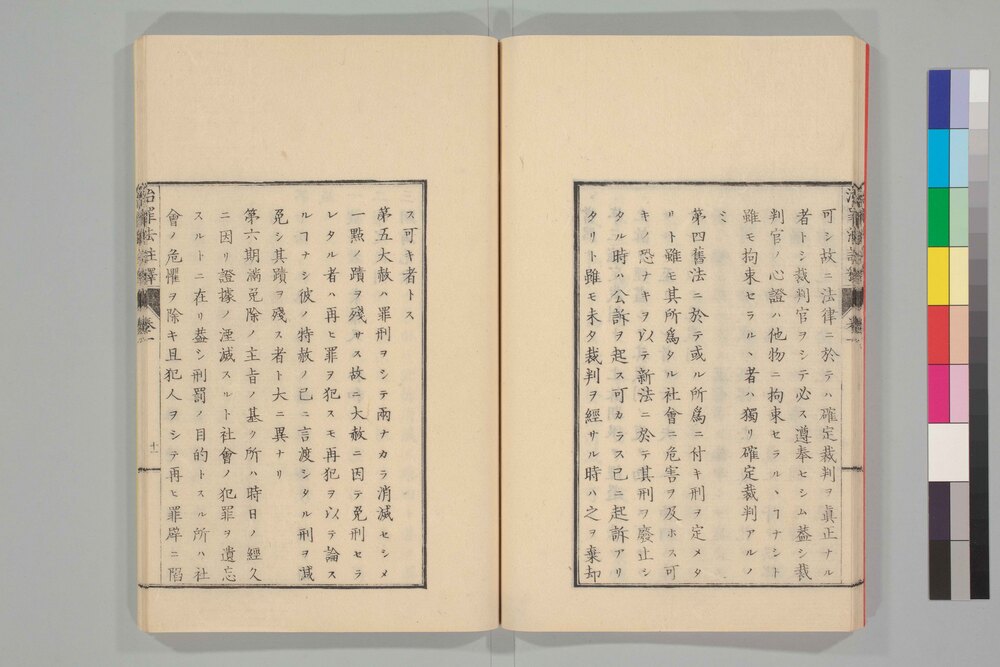 可シ故ニ法律ニ於テハ確定裁判ヲ眞正ナル
者トシ裁判官ヲシテ必ス遵奉セシム葢シ裁
判官ノ心證ハ他物ニ拘束セラルヽヿナシト
雖モ拘束セラルヽ者ハ獨リ確定裁判アルノ
ミ
第四舊法ニ於テ或ル所爲ニ付キ刑ヲ定メタ
リト雖モ其所爲タル社會ニ危害ヲ及ホス可
キノ恐ナキヲ以テ新法ニ於テ其刑ヲ廢止シ
タル時ハ公訴ヲ起ス可カラス已ニ起訴アリ
タリト雖モ未タ裁判ヲ經サル時ハ之ヲ棄却
ス可キ者トス
第五大赦ハ罪刑ヲシテ兩ナカラ消滅セシメ
一點ノ蹟ヲ殘サス故ニ大赦ニ因テ免刑セラ
レタル者ハ再ヒ罪ヲ犯スモ再犯ヲ以テ論ス
ルヿナシ彼ノ特赦ノ已ニ言渡シタル刑ヲ减
免シ其蹟ヲ殘ス者ト大ニ異ナリ
第六期滿免除ノ主旨ノ基ク所ハ時日ノ經久
ニ因リ證據ノ湮滅スルト社會ノ犯罪ヲ遺忘
スルトニ在リ葢シ刑罰ノ目的トスル所ハ社
會ノ危懼ヲ除キ且犯人ヲシテ再ヒ罪辟ニ陷
治罪法註釋
卷一
十